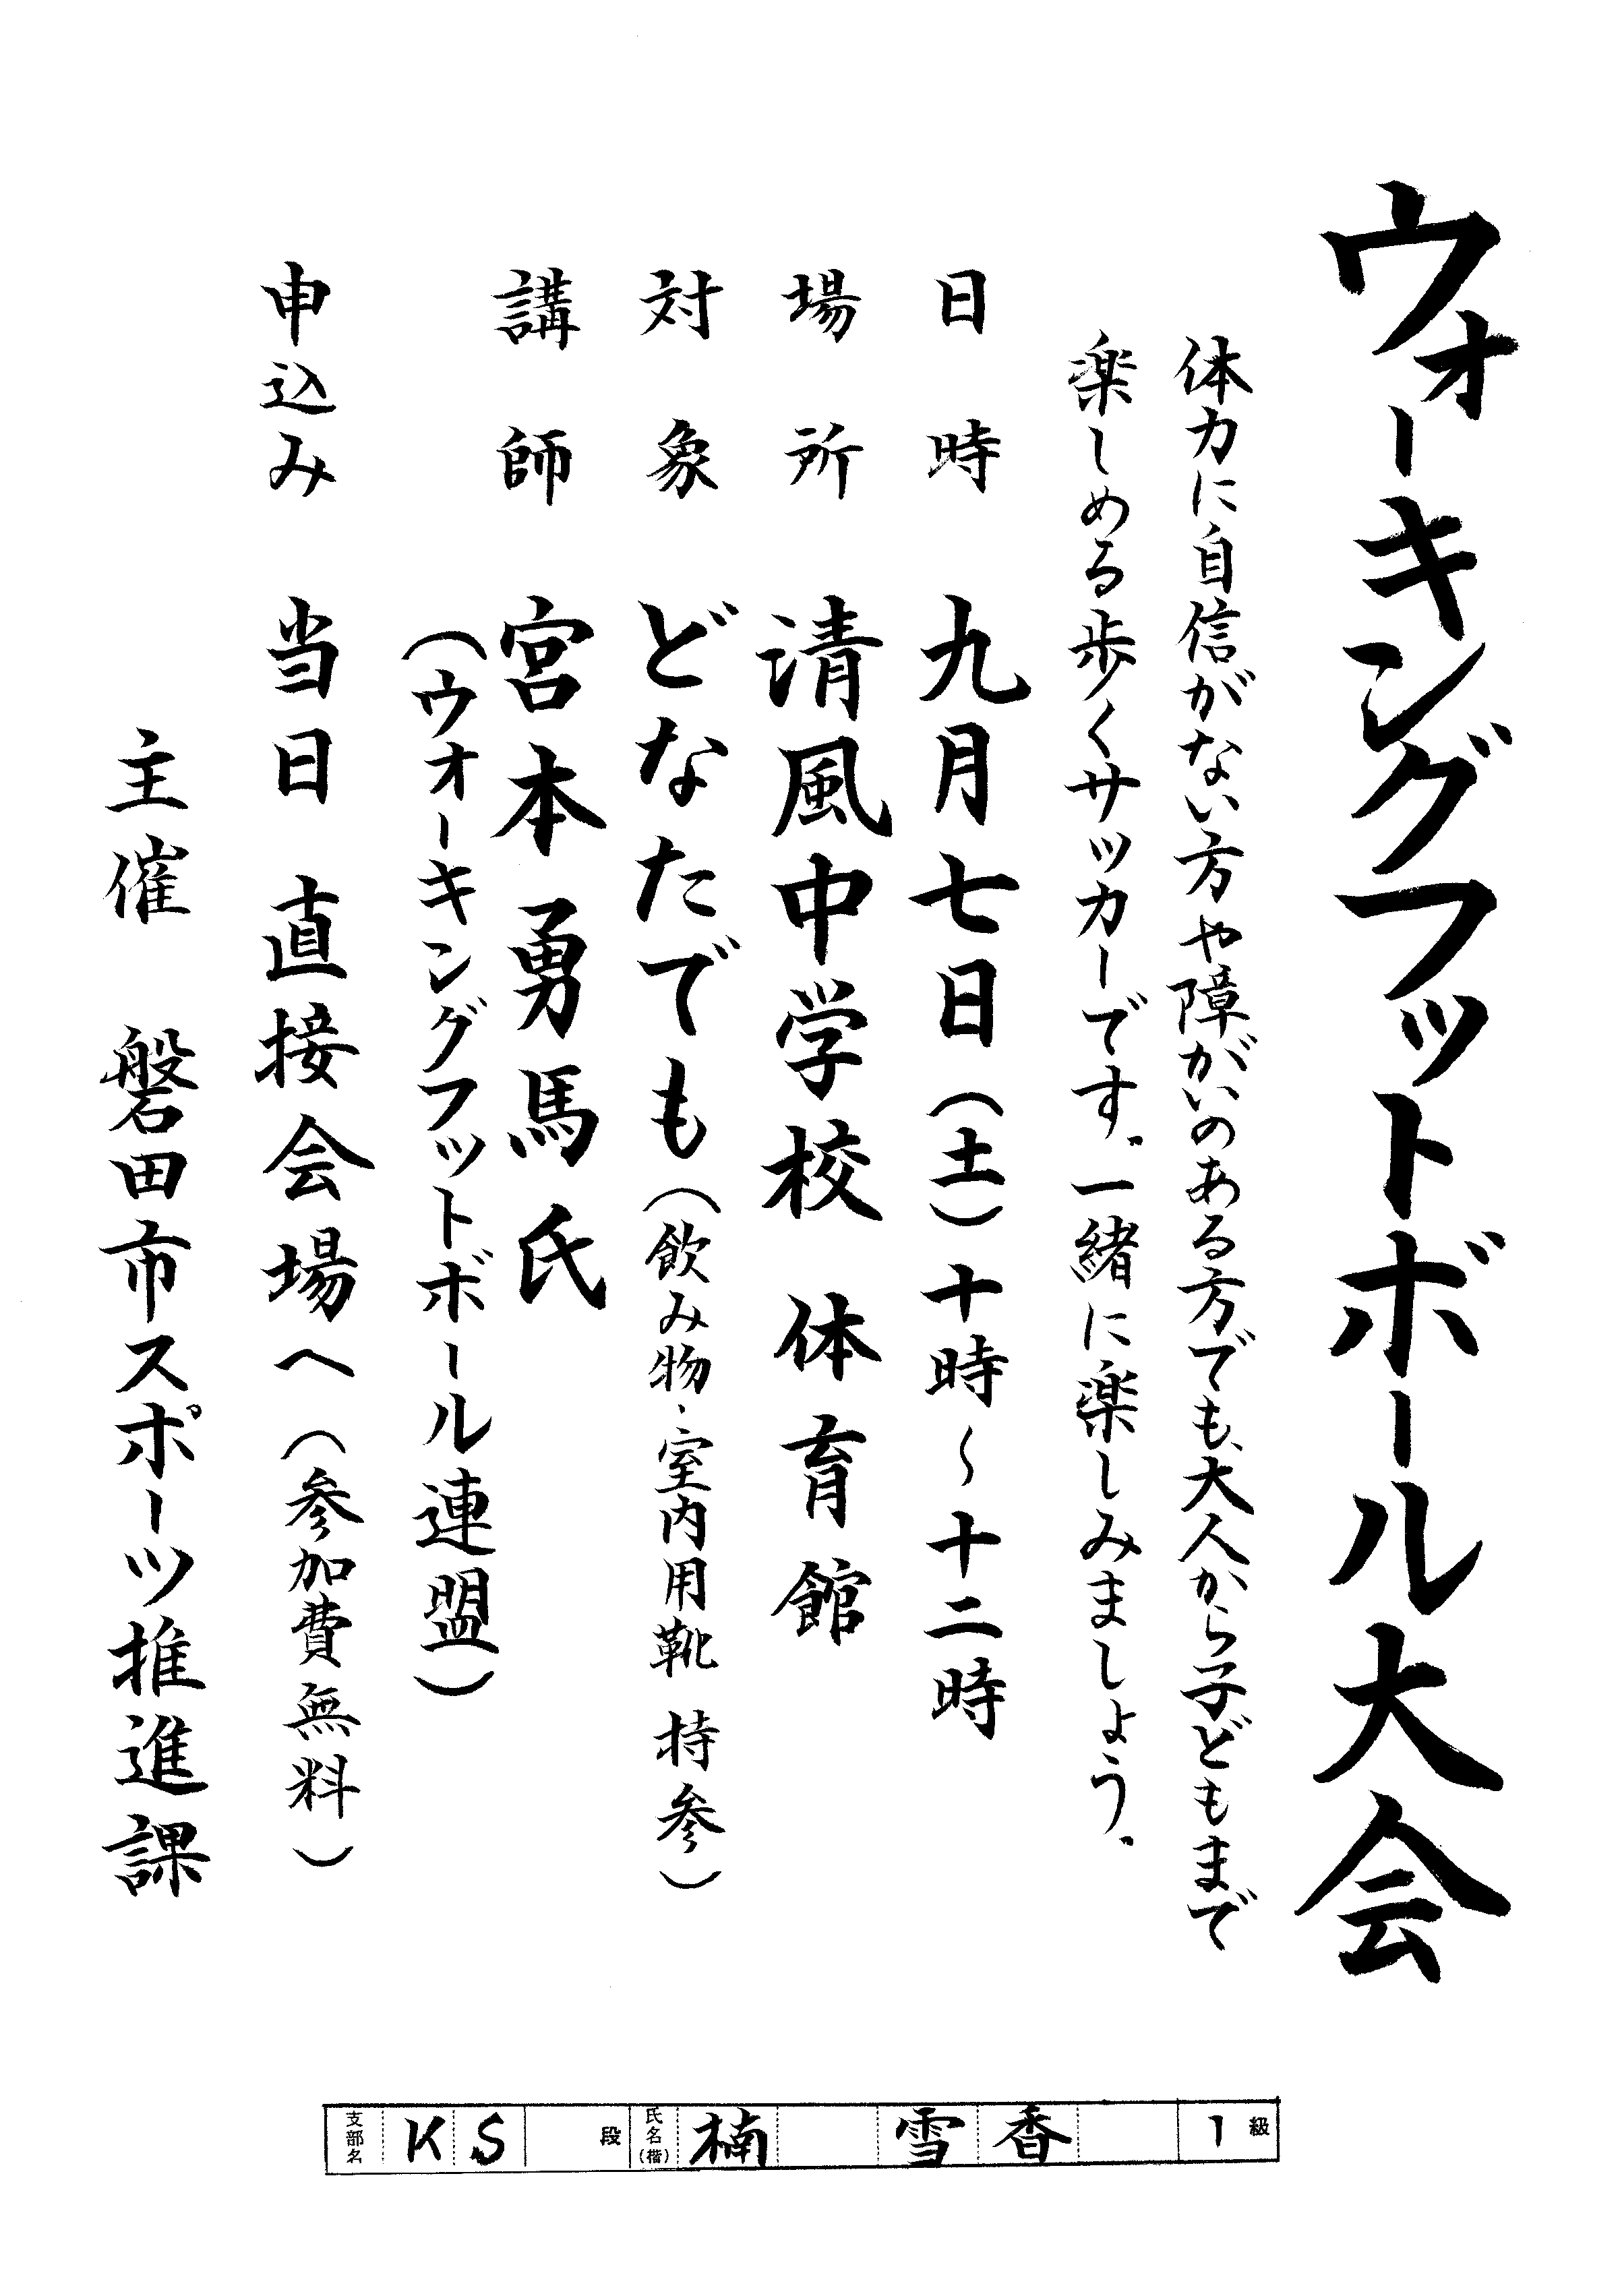 ウォーキングフットボール大会
体力に自信がない方や障がいのある方でも、大人から子どもまで
楽しめる歩くサッカーです。一緒に楽しみましょう。
日時 九月七日（土）十時～十二時
場所 清風中学校 体育館
対象 どなたでも（飲み物、室内用靴 持参）
講師 宮本勇馬氏
（ウォーキングフットボール連盟）
申込み 当日 直接会場へ（参加費無料）
主催 磐田市スポーツ推進課
支部名 KS 段 氏名（楷） 楠 雪香 1級